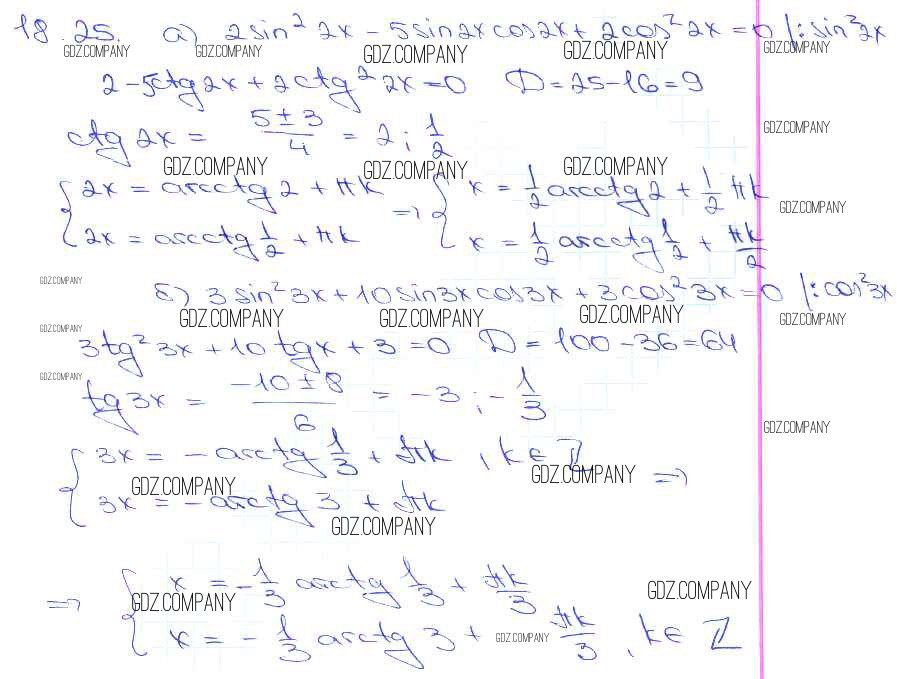 18.25. а) 2sin² 2x - 5sin2x cos2x + 2cos² 2x = 0 |:sin²2x
GDZ.COMPANY GDZ.COMPANY GDZ.COMPANY GDZ.COMPANY GDZ.COMPANY
2 - 5ctg2x + 2ctg² 2x = 0 D = 25 - 16 = 9
ctg 2x = (5 ± 3)/4 = 2; 1/2 GDZ.COMPANY
GDZ.COMPANY GDZ.COMPANY GDZ.COMPANY
{ 2x = arcctg 2 + πk => { x = 1/2 arcctg 2 + 1/2 πk GDZ.COMPANY
{ 2x = arcctg 1/2 + πk { x = 1/2 arcctg 1/2 + πk/2
GDZ.COMPANY
б) 3sin² 3x + 10sin3x cos3x + 3cos² 3x = 0 |:cos²3x
GDZ.COMPANY GDZ.COMPANY GDZ.COMPANY GDZ.COMPANY
GDZ.COMPANY
3tg² 3x + 10tgx + 3 = 0 D = 100 - 36 = 64
GDZ.COMPANY
tg 3x = (-10 ± 8)/6 = -3; -1/3
GDZ.COMPANY
{ 3x = -arctg 1/3 + πk, k ∈ Z
GDZ.COMPANY GDZ.COMPANY =>
{ 3x = -arctg 3 + πk
GDZ.COMPANY
{ x = -1/3 arctg 1/3 + πk/3
=> GDZ.COMPANY GDZ.COMPANY
{ x = -1/3 arctg 3 + πk/3, k ∈ Z
GDZ.COMPANY